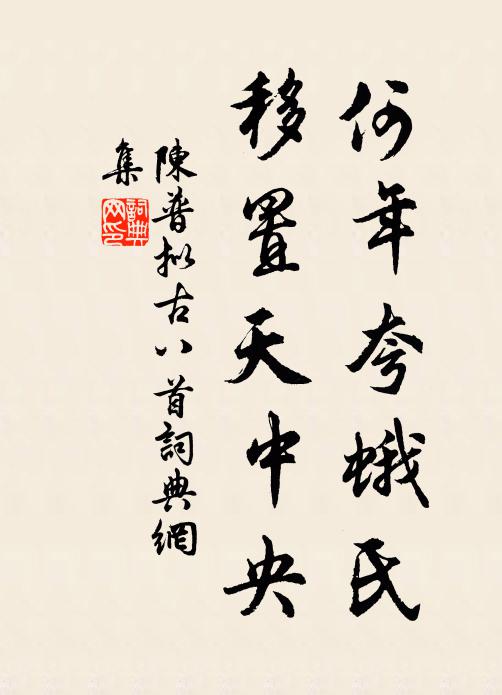 何年夸蛾氏
移置天中央
陳普拟古八首詞典網
集
詞典
网印